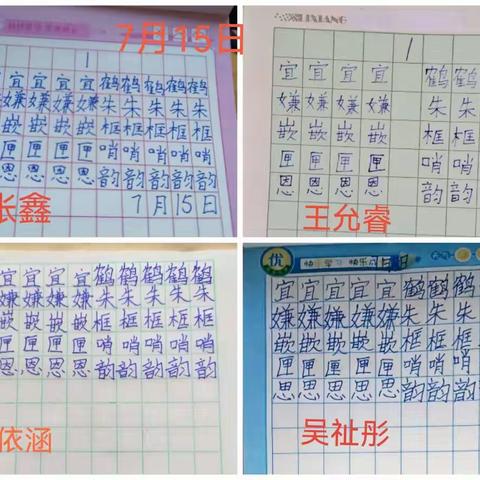 7月15日
1
宜宜宜鹤鹤鹤鹤
嫌嫌嫌嫌朱朱朱朱
嵌嵌嵌嵌框框框框
匣匣匣匣哨哨哨哨
恩恩恩恩韵韵韵韵
7月15日
张鑫
LIXIANG
1
宜宜宜宜鹤鹤
嫌嫌嫌嫌朱朱
嵌嵌嵌嵌框框
匣匣匣匣哨哨
恩恩恩恩韵韵
王允睿
宜宜宜宜鹤鹤鹤鹤
嫌嫌嫌嫌朱朱朱朱
嵌嵌嵌嵌框框框框
匣匣匣匣哨哨哨哨
恩恩恩恩韵韵韵韵
依涵
优 快乐学习 快乐
宜宜宜宜宜鹤鹤鹤
嫌嫌嫌嫌嫌朱朱朱
嵌嵌嵌嵌嵌框框框
匣匣匣匣匣哨哨哨
恩恩恩恩恩韵韵韵
吴祉彤